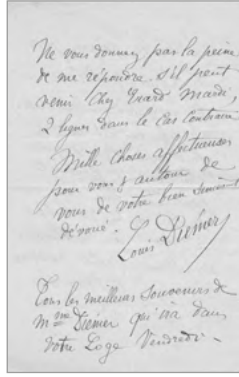 Ne vous donnez pas la peine
de me répondre. s'il peut
venir chez Erard Mardi,
2 lignes dans le cas contraire
Mille choses affectueuses
pour vous & autour de
vous de votre bien sincèrement
dévoué.
Louis Diémer
Tous les meilleurs souvenirs de
Mme Diémer qui ira dans
votre Loge Vendredi.